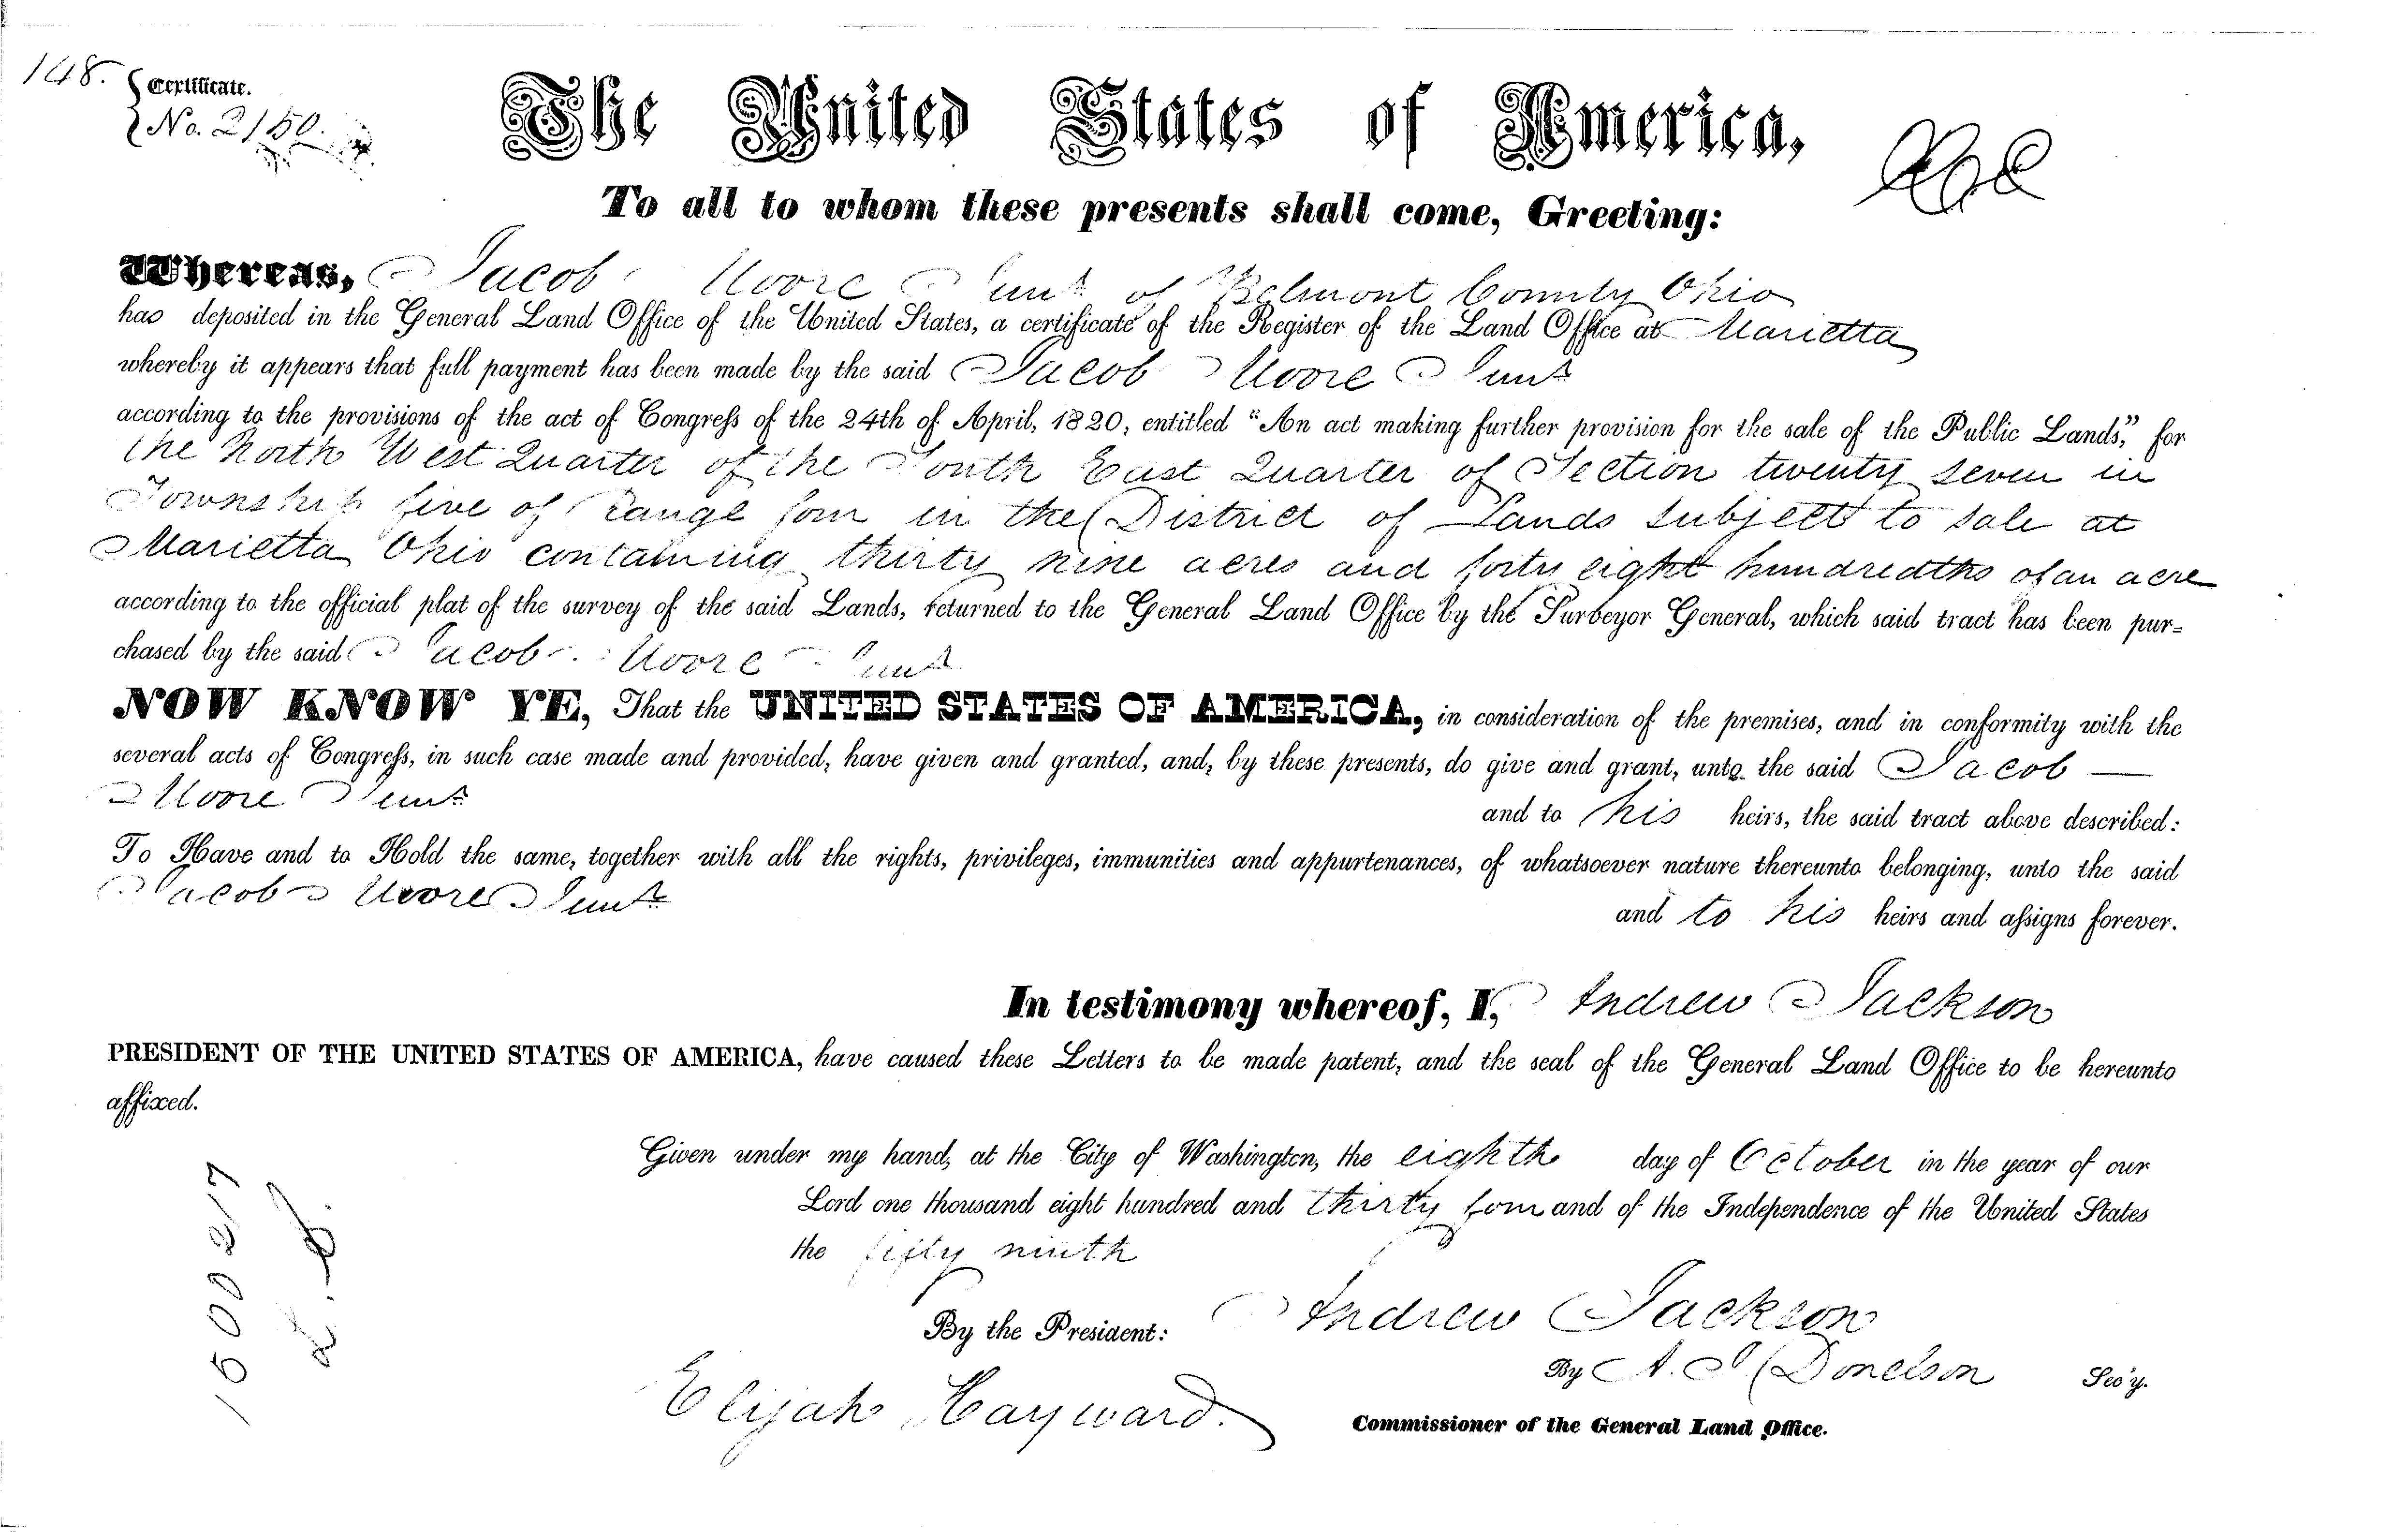 148.
Certificate.
No. 2150.
The United States of America,
To all to whom these presents shall come, Greeting:
Whereas, Jacob Moore Junr of Belmont County Ohio
has deposited in the General Land Office of the United States, a certificate of the Register of the Land Office at Marietta
whereby it appears that full payment has been made by the said Jacob Moore Junr
according to the provisions of the act of Congress of the 24th of April, 1820, entitled “An act making further provision for the sale of the Public Lands,” for
the North West Quarter of the South East Quarter of Section twenty seven in
Township five of Range four in the District of Lands subject to sale at
Marietta Ohio containing thirty nine acres and forty eight hundredths of an acre
according to the official plat of the survey of the said Lands, returned to the General Land Office by the Surveyor General, which said tract has been pur=
chased by the said Jacob Moore Junr
NOW KNOW YE, That the UNITED STATES OF AMERICA, in consideration of the premises, and in conformity with the
several acts of Congress, in such case made and provided, have given and granted, and, by these presents, do give and grant, unto the said Jacob —
Moore Junr and to his heirs, the said tract above described:
To Have and to Hold the same, together with all the rights, privileges, immunities and appurtenances, of whatsoever nature thereunto belonging, unto the said
Jacob Moore Junr and to his heirs and assigns forever.
In testimony whereof, I, Andrew Jackson
PRESIDENT OF THE UNITED STATES OF AMERICA, have caused these Letters to be made patent, and the seal of the General Land Office to be hereunto
affixed.
Given under my hand, at the City of Washington, the eighth day of October in the year of our
Lord one thousand eight hundred and thirty four and of the Independence of the United States
the fifty ninth
By the President: Andrew Jackson
By A. J. Donelson Sec'y.
Elijah Hayward. Commissioner of the General Land Office.